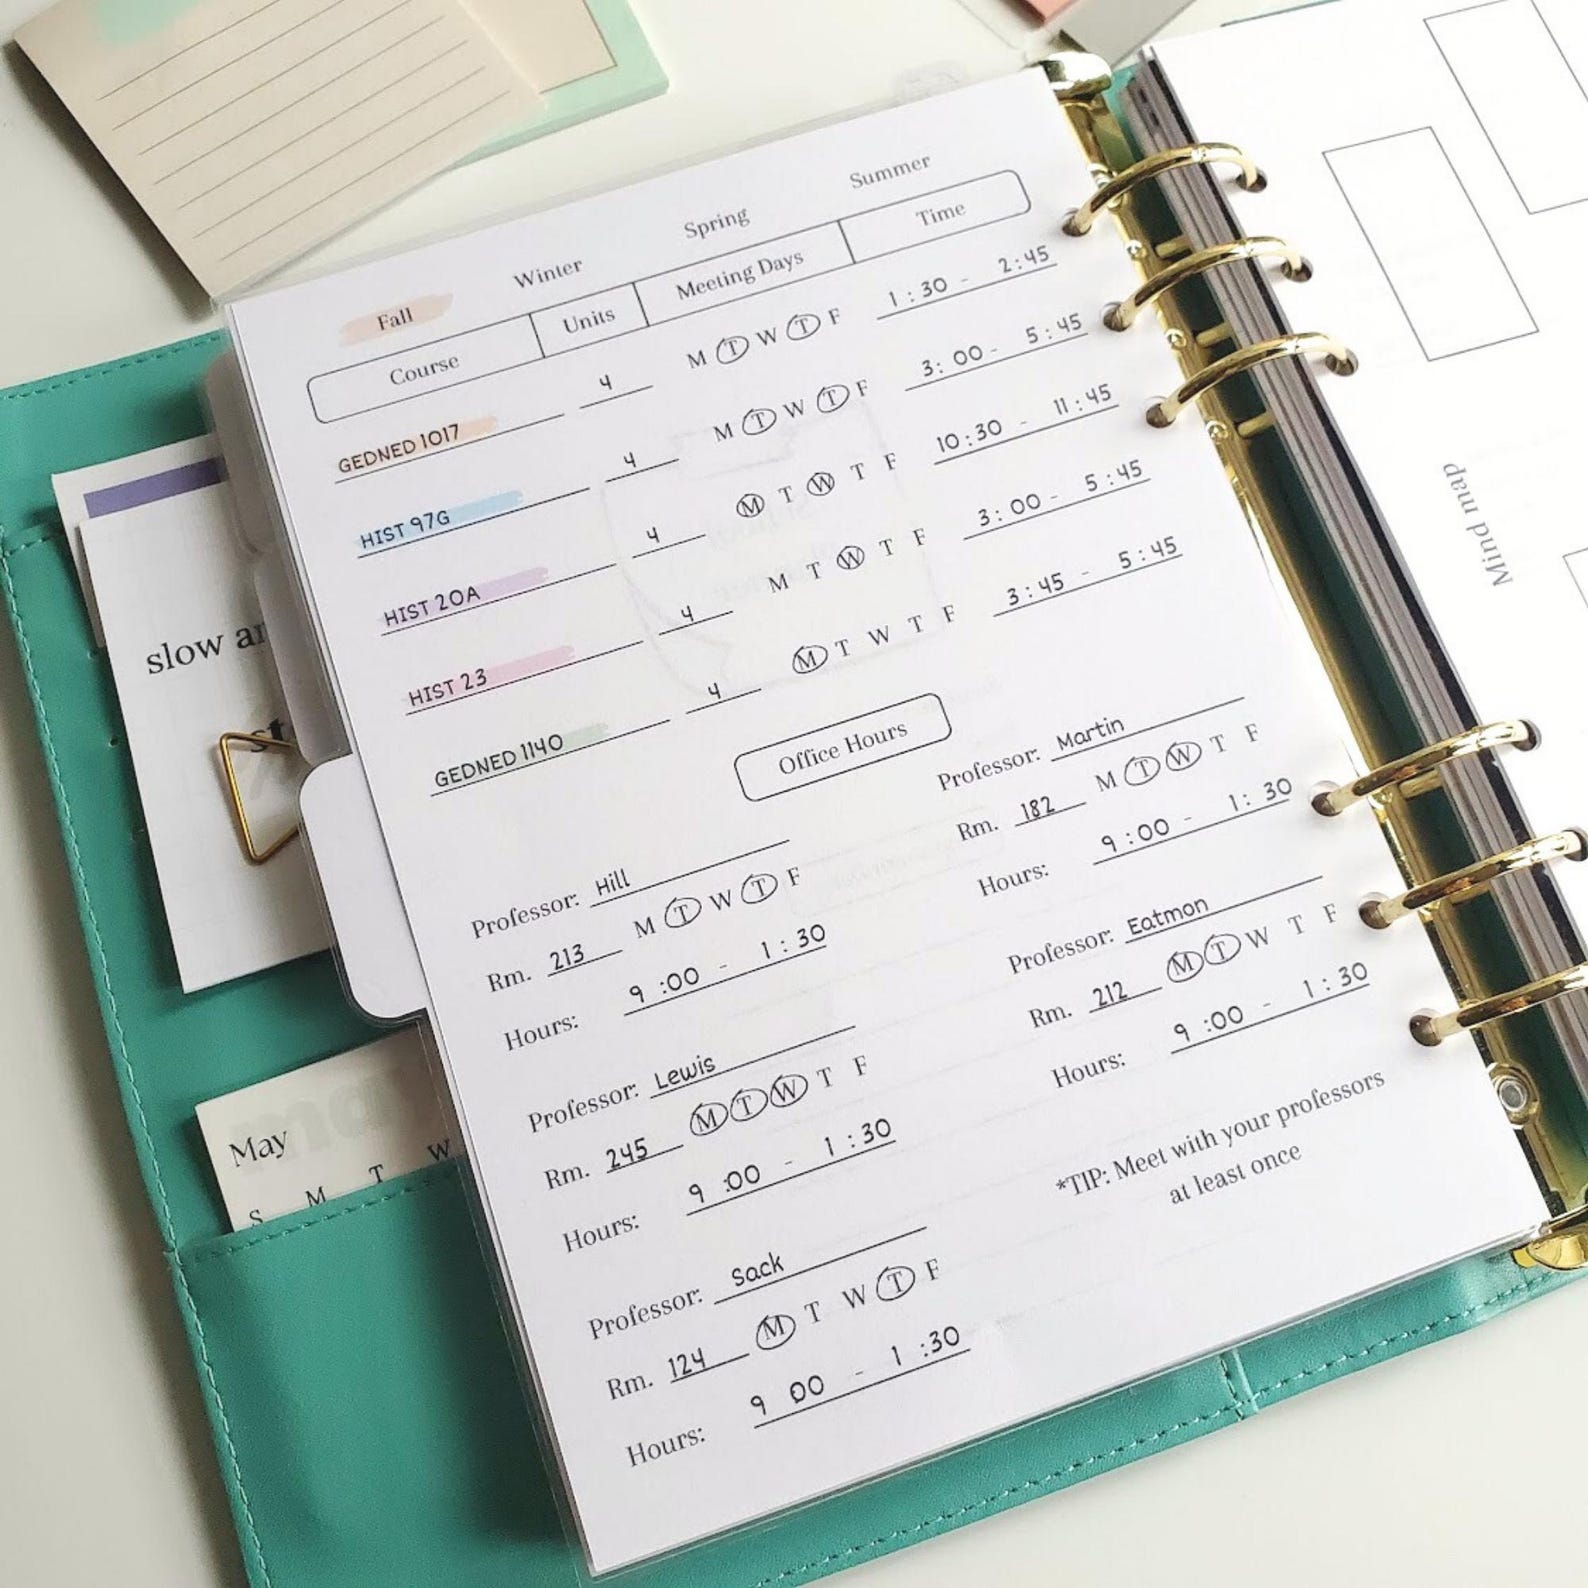 Fall Winter Spring Summer
Course Units Meeting Days Time
GEDNED 1017 4 M T W T F 1:30 - 2:45
HIST 97G 4 M T W T F 3:00 - 5:45
HIST 20A 4 M T W T F 10:30 - 11:45
HIST 23 4 M T W T F 3:00 - 5:45
GEDNED 1140 4 M T W T F 3:45 - 5:45
Office Hours
Professor: Hill
Rm. 213 M T W T F
Hours: 9:00 - 1:30
Professor: Lewis
Rm. 245 M T W T F
Hours: 9:00 - 1:30
Professor: Sack
Rm. 124 M T W T F
Hours: 9 00 - 1:30
Professor: Martin
Rm. 182 M T W T F
Hours: 9:00 - 1:30
Professor: Eatmon
Rm. 212 M T W T F
Hours: 9:00 - 1:30
*TIP: Meet with your professors
at least once
Mind map
slow
May
S M T W